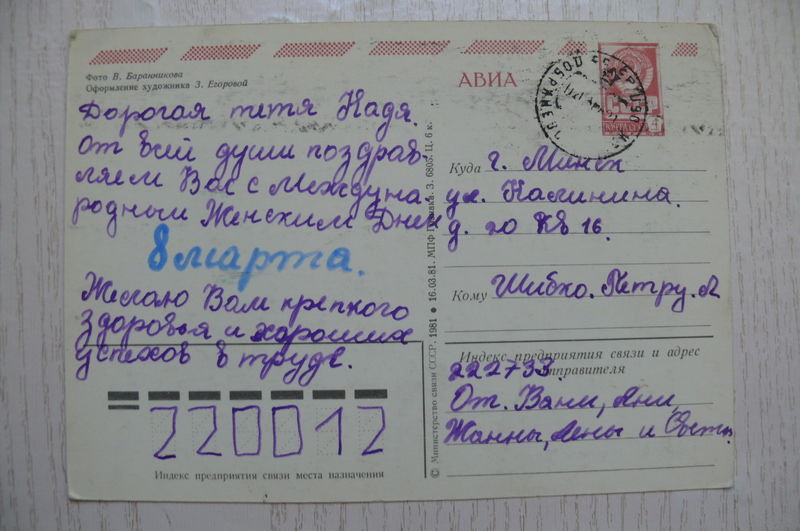 Фото В. Баранникова
Оформление художника З. Егоровой
Дорогая тетя Надя
от всей души поздрав-
ляем Вас с Междуна-
родным Женским Днем
8 марта.
Желаю Вам крепкого
здоровья и хороших
успехов в труде.
220012
Индекс предприятия связи места назначения
© Министерство связи СССР, 1981 • 16.03.81. МПФ Гознака. З. 6805. Ц. 6 к.
АВИА
Куда г. Минск
ул. Калинина.
д. 20 Кв 16.
Кому Шибко. Петру. А
Индекс предприятия связи и адрес
отправителя
222733.
От. Вани, Ани,
Жанны, Лены и Светы.